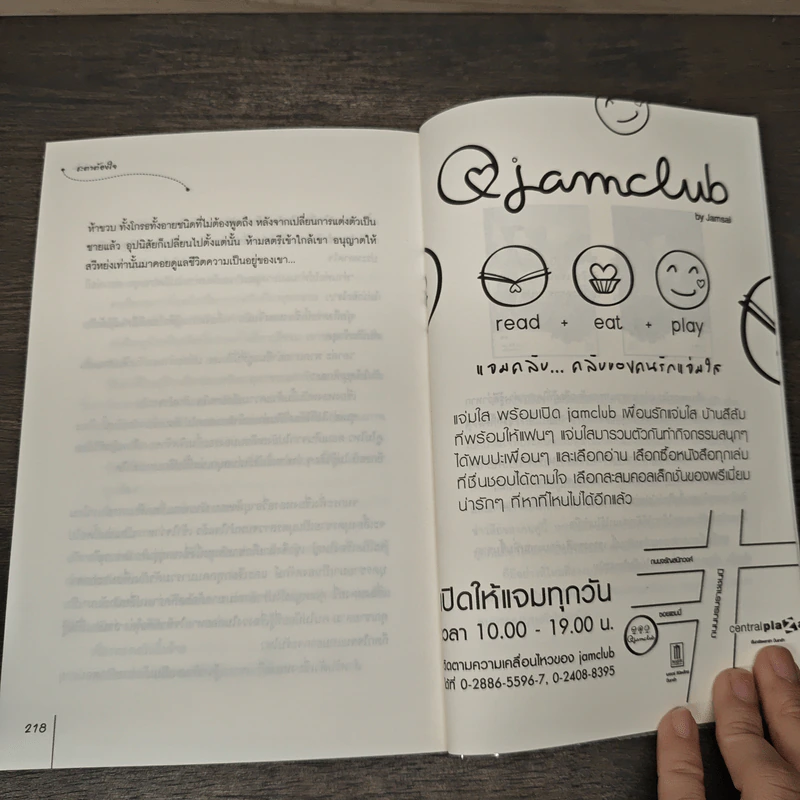 ห้าขวบ ทั้งโกรธทั้งอายชนิดที่ไม่ต้องพูดถึง หลังจากเปลี่ยนการแต่งตัวเป็น
ชายแล้ว อุปนิสัยก็เปลี่ยนไปตั้งแต่นั้น ห้ามสตรีเข้าใกล้เขา อนุญาตให้
สวีหย่งเท่านั้นมาคอยดูแลชีวิตความเป็นอยู่ของเขา...
218
jamclub
by Jamsai
read + eat + play
แจมคลับ... คลับของคนรักแจ่มใส
แจ่มใส พร้อมเปิด jamclub เพื่อนรักแจ่มใส บ้านสีส้ม
ที่พร้อมให้แฟนๆ แจ่มใสมารวมตัวกันทำกิจกรรมสนุกๆ
ได้พบปะเพื่อนๆ และเลือกอ่าน เลือกซื้อหนังสือทุกเล่ม
ที่ชื่นชอบได้ตามใจ เลือกสะสมคอลเล็กชั่นของพรีเมี่ยม
น่ารักๆ ที่หาที่ไหนไม่ได้อีกแล้ว
เปิดให้แจมทุกวัน
เวลา 10.00 - 19.00 น.
ติดตามความเคลื่อนไหวของ jamclub
ได้ที่ 0-2886-5596-7, 0-2408-8395
ถนนจรัญสนิทวงศ์
ถนนบรมราชชนนี
jamclub
centralplaza